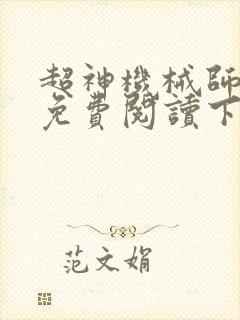 超神機械師
免費閱讀下
范文娟